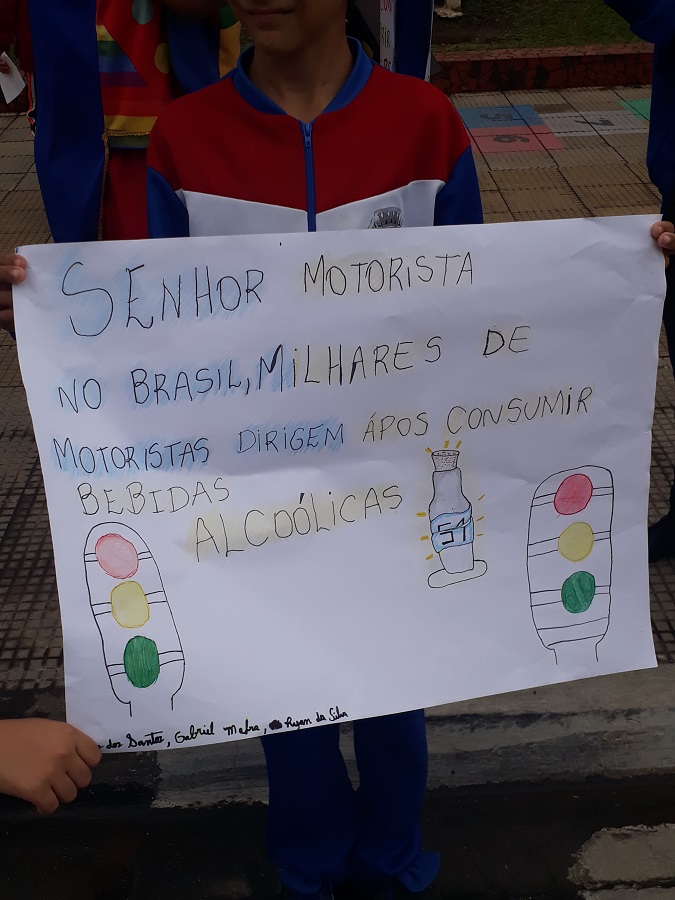 SENHOR MOTORISTA
NO BRASIL, MILHARES DE
MOTORISTAS DIRIGEM ÁPOS CONSUMIR
BEBIDAS
ALCOÓLICAS
51
dos Santos, Gabriel Mafra, Ryan da Silva